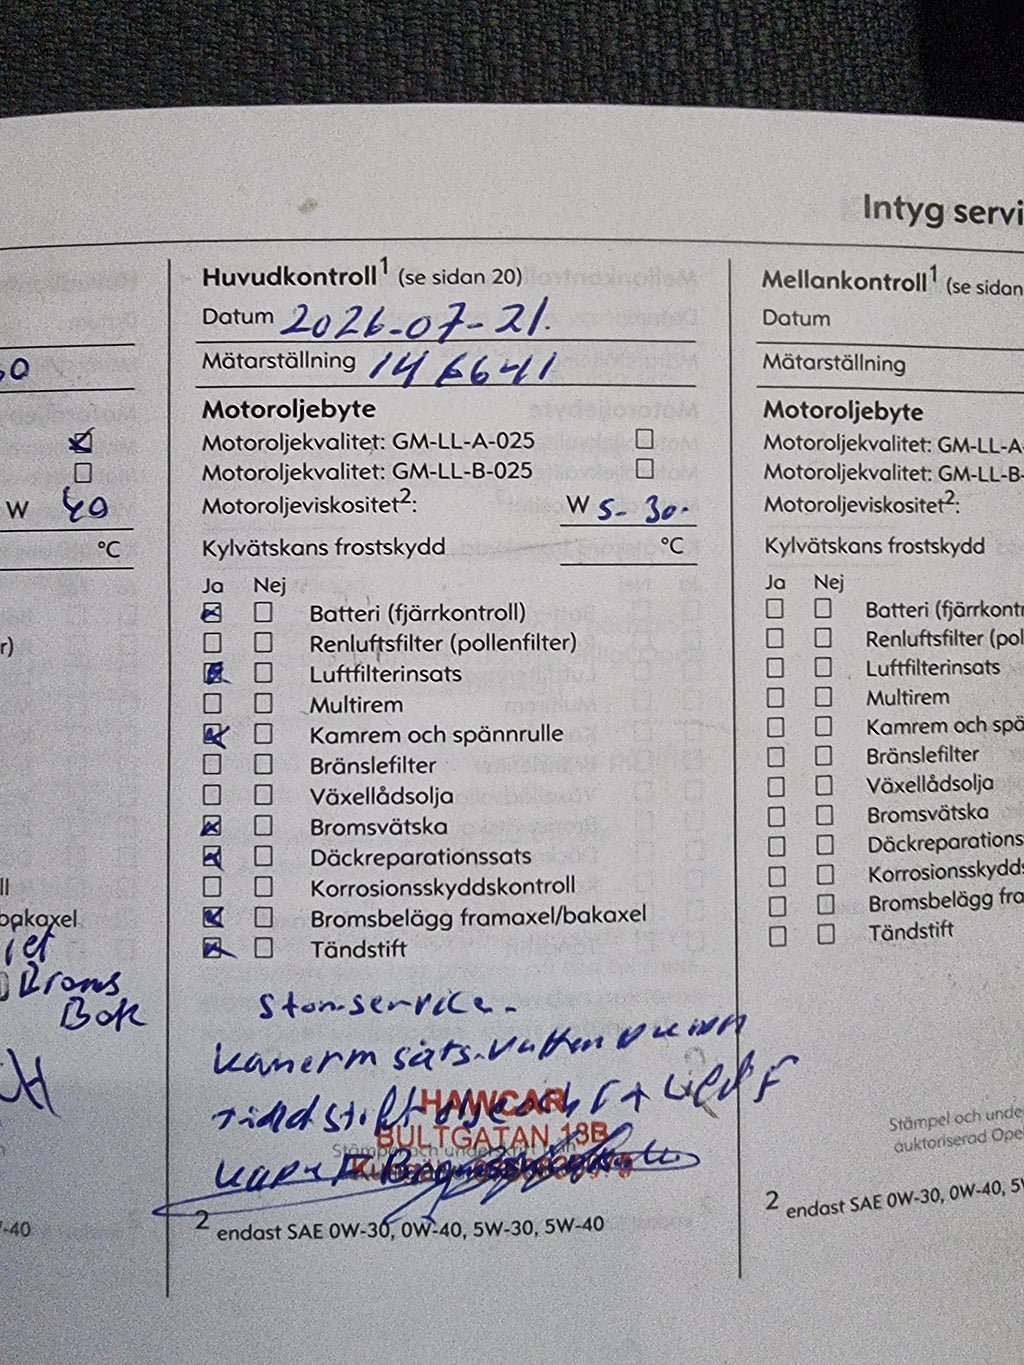 Intyg servi
50
W 40
°C
r)
ll
bakaxel
Broms
Bok
-40
Huvudkontroll1 (se sidan 20)
Datum 2026-07-21.
Mätarställning 146641
Motoroljebyte
Motoroljekvalitet: GM-LL-A-025
Motoroljekvalitet: GM-LL-B-025
Motoroljeviskositet2: W 5-30.
Kylvätskans frostskydd °C
Ja Nej
Batteri (fjärrkontroll)
Renluftsfilter (pollenfilter)
Luftfilterinsats
Multirem
Kamrem och spännrulle
Bränslefilter
Växellådsolja
Bromsvätska
Däckreparationssats
Korrosionsskyddskontroll
Bromsbelägg framaxel/bakaxel
Tändstift
Stor service.
sats
HAWCAR
BULTGATAN 13B
Stämpel och underskrift från
2 endast SAE 0W-30, 0W-40, 5W-30, 5W-40
Mellankontroll1 (se sidan
Datum
Mätarställning
Motoroljebyte
Motoroljekvalitet: GM-LL-A-
Motoroljekvalitet: GM-LL-B-
Motoroljeviskositet2:
Kylvätskans frostskydd
Ja Nej
Batteri (fjärrkontr
Renluftsfilter (pol
Luftfilterinsats
Multirem
Kamrem och spä
Bränslefilter
Växellådsolja
Bromsvätska
Däckreparations
Korrosionsskydds
Bromsbelägg fra
Tändstift
Stämpel och unde
auktoriserad Ope
2 endast SAE 0W-30, 0W-40, 5W